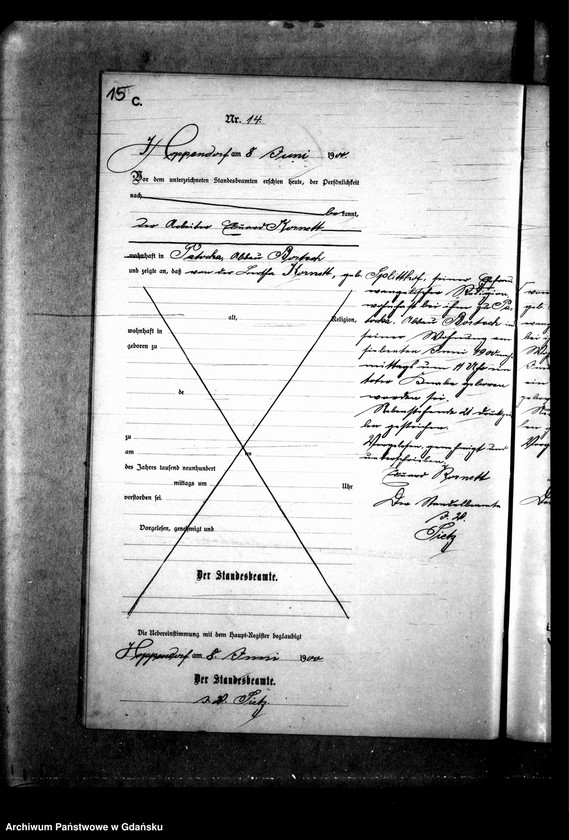 15
C.
Nr. 14.
Hoppendorf am 8 Juni 1900.
Vor dem unterzeichneten Standesbeamten erschien heute, der Persönlichkeit
nach
bekannt,
der Arbeiter Eduard Kornett
wohnhaft in Patocka, Abbau Borteck
und zeigte an, daß von der Kornett, geb. Splitthof, seiner Ehefrau
evangelischer Religion
wohnhaft bei ihm zu Pa-
tocka, Abbau Borteck in
seiner Wohnung am
siebenten Juni 1900 nach-
mittags um 11 Uhr ein
toter Knabe geboren
worden sei.
Nebenstehende 21 Druckzei-
len gestrichen.
Vorgelesen, genehmigt und
unterschrieben.
Eduard Kornett
Der Standesbeamte
i. V.
Tietz
alt, Religion,
wohnhaft in
geboren zu
de
zu
am
des Jahres tausend neunhundert
mittags um Uhr
verstorben sei.
Vorgelesen, genehmigt und
Der Standesbeamte.
Die Uebereinstimmung mit dem Haupt-Register beglaubigt
Hoppendorf am 8. Juni 1900
Der Standesbeamte.
i. V. Tietz
Archiwum Państwowe w Gdańsku